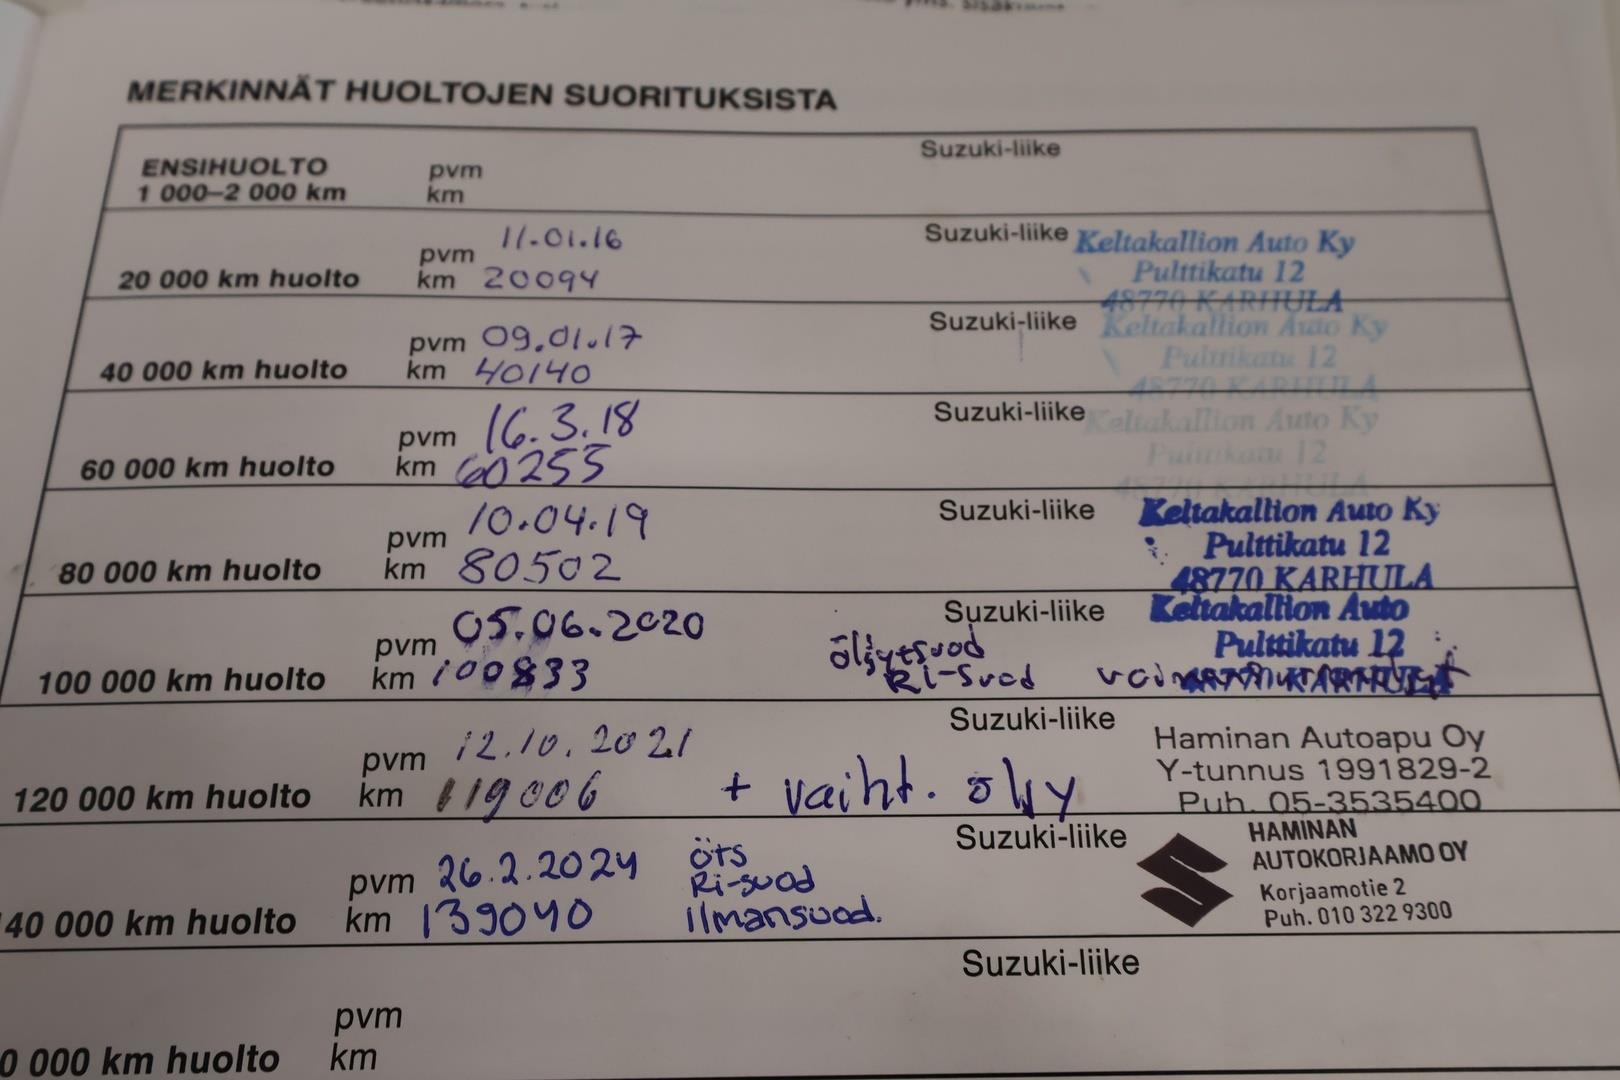 MERKINNÄT HUOLTOJEN SUORITUKSISTA
ENSIHUOLTO
1 000–2 000 km
pvm
km
Suzuki-liike
20 000 km huolto
pvm 11.01.16
km 20094
Suzuki-liike
Keltakallion Auto Ky
Pulttikatu 12
48770 KARHULA
40 000 km huolto
pvm 09.01.17
km 40140
Suzuki-liike
Keltakallion Auto Ky
Pulttikatu 12
48770 KARHULA
60 000 km huolto
pvm 16.3.18
km 60255
Suzuki-liike
Keltakallion Auto Ky
Pulttikatu 12
48770 KARHULA
80 000 km huolto
pvm 10.04.19
km 80502
Suzuki-liike
Keltakallion Auto Ky
Pulttikatu 12
48770 KARHULA
100 000 km huolto
pvm 05.06.2020
km 100833
Suzuki-liike
Ri-Suod
Keltakallion Auto
Pulttikatu 12
48770 KARHULA
120 000 km huolto
pvm 12.10.2021
km 119006
+ vaiht. öljy
Suzuki-liike
Haminan Autoapu Oy
Y-tunnus 1991829-2
Puh. 05-3535400
40 000 km huolto
pvm 26.2.2024
km 139040
öts
Ri-suod
Ilmansuod.
Suzuki-liike
HAMINAN
AUTOKORJAAMO OY
Korjaamotie 2
Puh. 010 322 9300
0 000 km huolto
pvm
km
Suzuki-liike